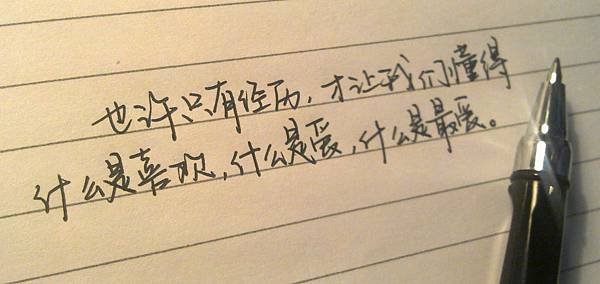 也许只有经历，才让我们懂得
什么是喜欢，什么是爱，什么是最爱。